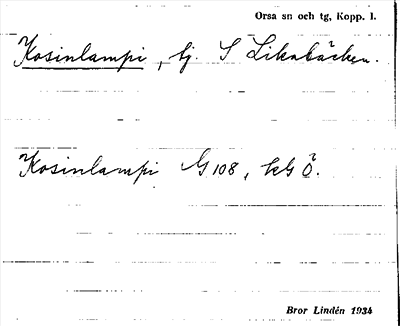 Orsa sn och tg, Kopp. l.
Kosinlampi, tj. S Likabäcken.
Kosinlampi G 108, kG Ö.
Bror Lindén 1934